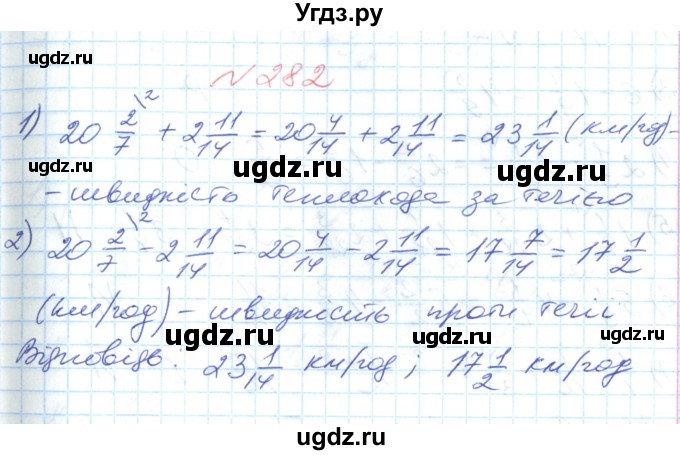 Угдз.ру
№ 282
1) 20 2/7 \2 + 2 11/14 = 20 4/14 + 2 11/14 = 23 1/14 (км/год) -
- швидкість теплохода за течією
2) 20 2/7 \2 - 2 11/14 = 20 4/14 - 2 11/14 = 17 7/14 = 17 1/2
(км/год) - швидкість проти течії
Відповідь: 23 1/14 км/год; 17 1/2 км/год
ugdz.ru
ugdz.ru
ugdz.ru
ugdz.ru
ugdz.ru
ugdz.ru
ugdz.ru
ugdz.ru
ugdz.ru
ugdz.ru
ugdz.ru